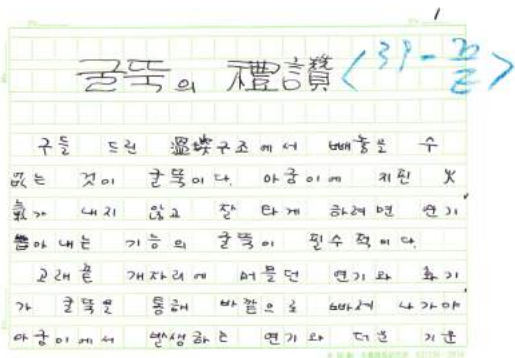 1
굴뚝의 禮讚
구들 드린 溫堗구조에서 빼놓을 수
없는 것이 굴뚝이다. 아궁이에 지핀 火
氣가 내지 않고 잘 타게 하려면 연기
뽑아 내는 기능의 굴뚝이 필수적이다.
고래끝 개자리에 머물던 연기와 화기
가 굴뚝을 통해 바깥으로 빠져 나가야
아궁이에서 발생하는 연기와 더운 기운